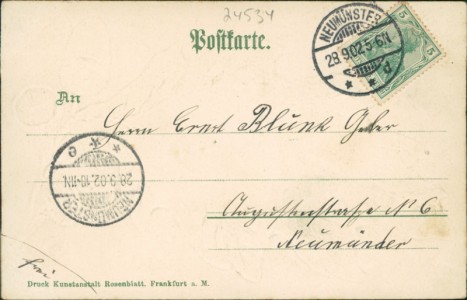 24534
Postkarte.
NEUMÜNSTER
28.9.02.5-6N
5
5
An
Herrn Ernst Blunk
NEUMÜNSTER
28.9.02.10-11N
Augustenstrasse N° 6
Neumünster
frei
Druck Kunstanstalt Rosenblatt. Frankfurt a. M.